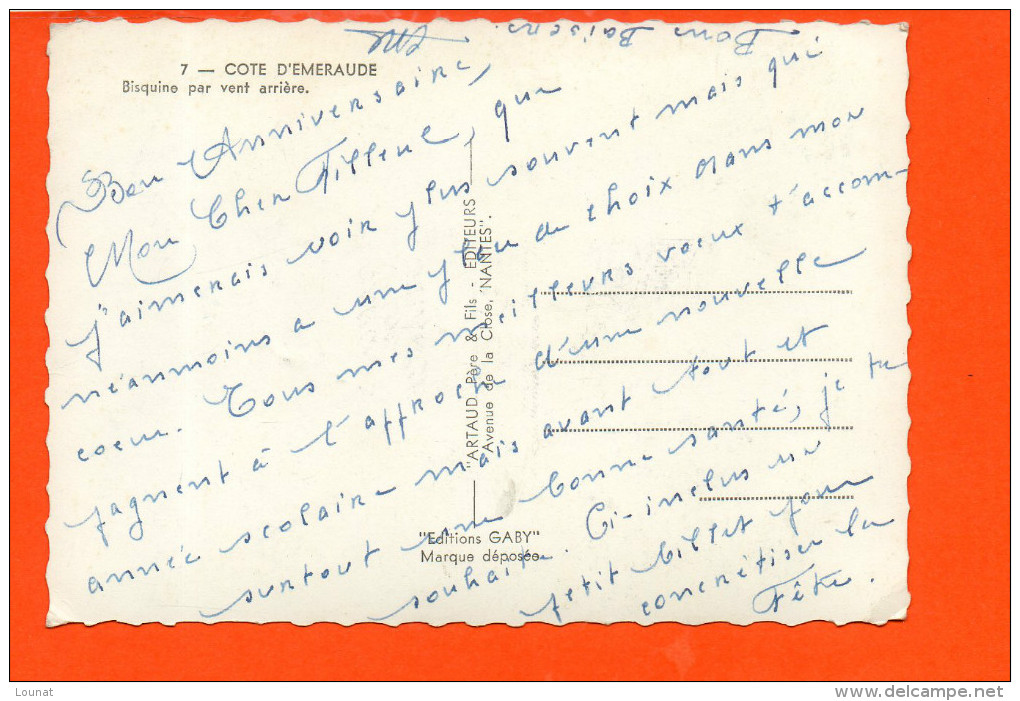 7 — COTE D'EMERAUDE
Bisquine par vent arrière.
Bon Anniversaire,
Mon Cher Filleul, que
j'aimerais voir plus souvent mais qui
néanmoins a une place de choix dans mon
coeur. Tous mes meilleurs voeux t'accom-
pagnent à l'approche d'une nouvelle
année scolaire mais avant tout et
surtout une bonne santé, je te
souhaite. Ci-inclus un
petit billet pour
concrétiser la
Fête.
Bons Baisers.
"ARTAUD Père & Fils - EDITEURS
Avenue de la Close, NANTES".
"Editions GABY"
Marque déposée
Lounat
www.delcampe.net